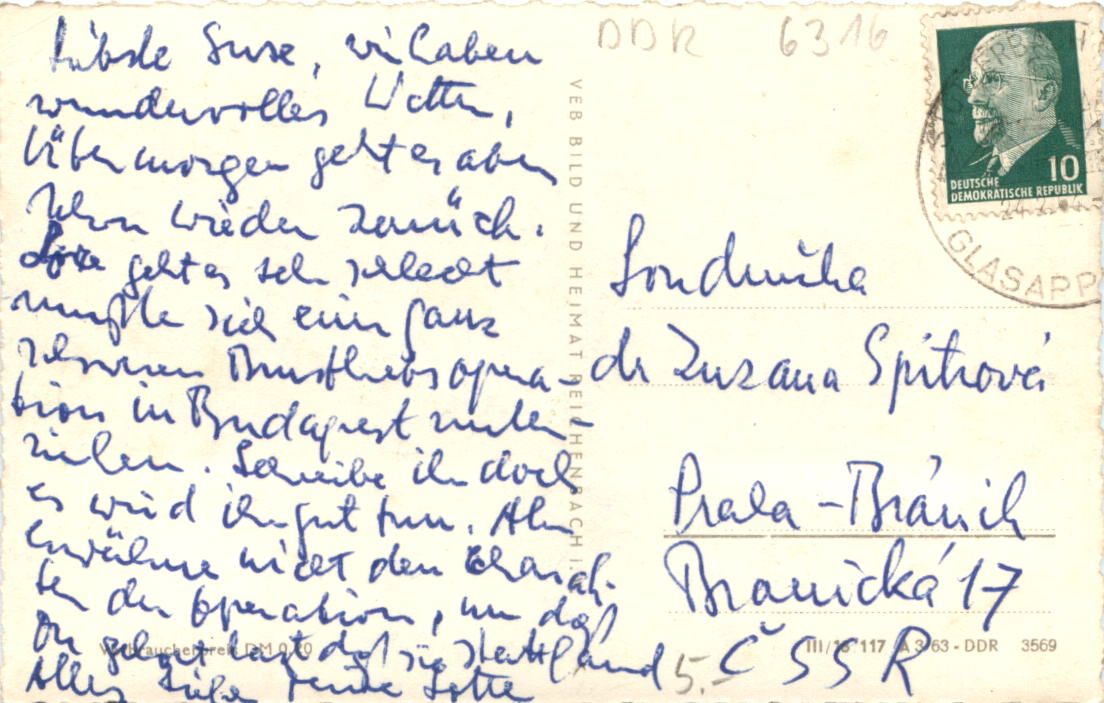 Liebste Suse, wir haben
wundervolles Wetter,
Übermorgen geht es aber
schon wieder zurück.
geht es sehr schlecht
mußte sich einer ganz
schweren Brustkrebsopera-
tion in Budapest unter-
ziehen. Schreibe ihr doch
es wird ihr gut tun. Aber
erwähne nicht den Charak-
ter der Operation, nur daß
Du gehört hast daß sie stattfand
Alles Liebe Deine Lotte
DDR 6316
VEB BILD UND HEIMAT REICHENBACH i.
10
DEUTSCHE
DEMOKRATISCHE REPUBLIK
Soudružka
dr Zuzana Spitrová
Praha - Bránik
Branická 17
5.- ČSSR
Verbraucherpreis DM 0,20
III/18 117 A 3/63 - DDR 3569